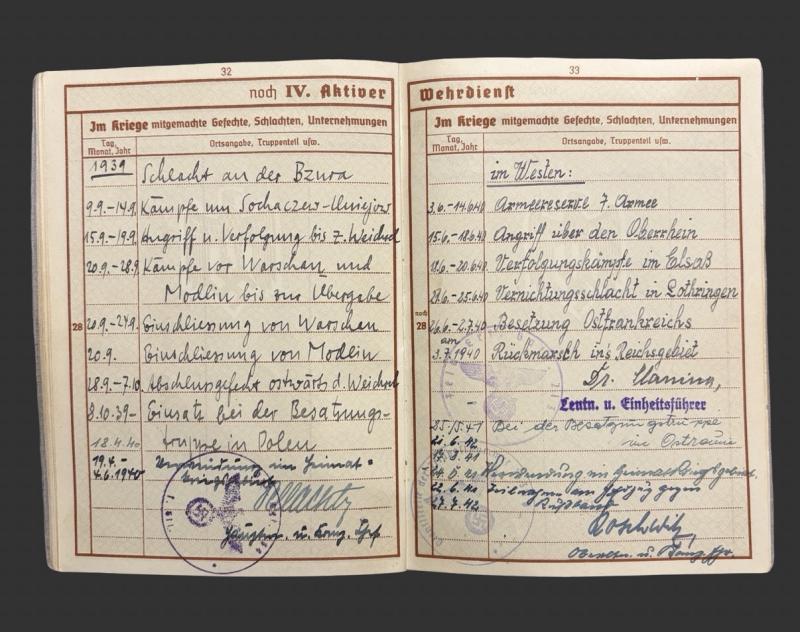 32
noch IV. Aktiver
Im Kriege mitgemachte Gefechte, Schlachten, Unternehmungen
Tag, Monat, Jahr
Ortsangabe, Truppenteil usw.
1939 Schlacht an der Bzura
9.9.-14.9. Kämpfe um Sochaczew-Uniejow
15.9.-19.9. Angriff u. Verfolgung bis z. Weichsel
20.9.-28.9. Kämpfe vor Warschau und
Modlin bis zur Übergabe
28
20.9.-24.9. Einschließung von Warschau
20.9. Einschließung von Modlin
28.9.-7.10. Abschlussgefecht ostwärts d. Weichsel
8.10.39- Einsatz bei der Besatzungs-
18.4.40 truppe in Polen
19.4.- Verwendung im Heimat-
4.6.1940 kriegsgebiet
Hauptm. u. Komp. Chef
33
Wehrdienst
Im Kriege mitgemachte Gefechte, Schlachten, Unternehmungen
Tag, Monat, Jahr
Ortsangabe, Truppenteil usw.
im Westen:
3.6.-14.6.40 Armeereserve 7. Armee
15.6.-18.6.40 Angriff über den Oberrhein
18.6.-20.6.40 Verfolgungskämpfe im Elsaß
21.6.-25.6.40 Vernichtungsschlacht in Lothringen
noch 28
26.6.-2.7.40 Besetzung Ostfrankreichs
am
3.7.1940 Rückmarsch in's Reichsgebiet
Dr.
Leutn. u. Einheitsführer
Bei der Besatzungstruppe
im Ostraum
Verwendung im Heimatkriegsgebiet
22.6.42 Teilnahme am Feldzug gegen
27.7.42 Rußland
Oberltn. u. Komp.